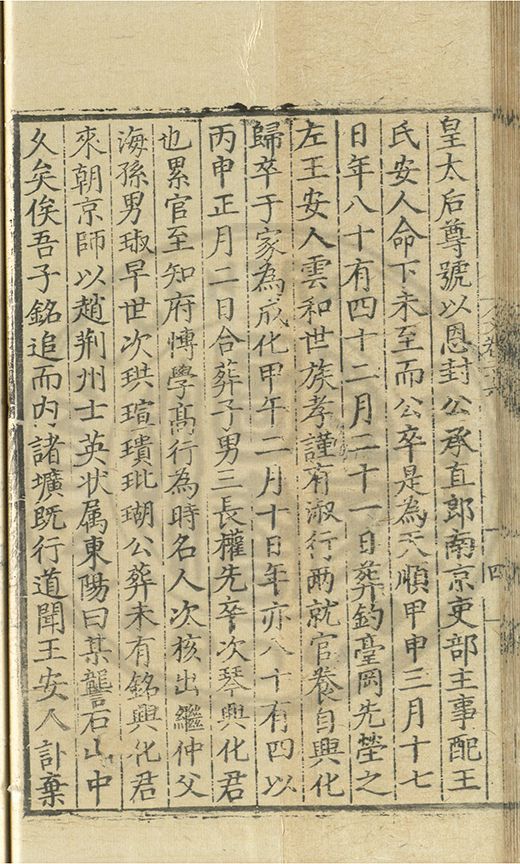 皇太后尊號以恩封公承直郎南京吏部主事配王
氏安人命下未至而公卒是為天順甲申三月十七
日年八十有四十二月二十一日葬釣臺岡先塋之
左王安人雲和世族孝謹有淑行两就官養自興化
歸卒于家為成化甲午二月十日年亦八十有四以
丙申正月二日合葬子男三長權先卒次琴興化君
也累官至知府愽學高行為時名人次核出繼仲父
海孫男琡早世次珙瑄璝玭瑚公葬未有銘興化君
來朝京師以趙荆州士英状属東陽曰某礱石山中
久矣俟吾子銘追而内諸壙既行道聞王安人訃棄
四